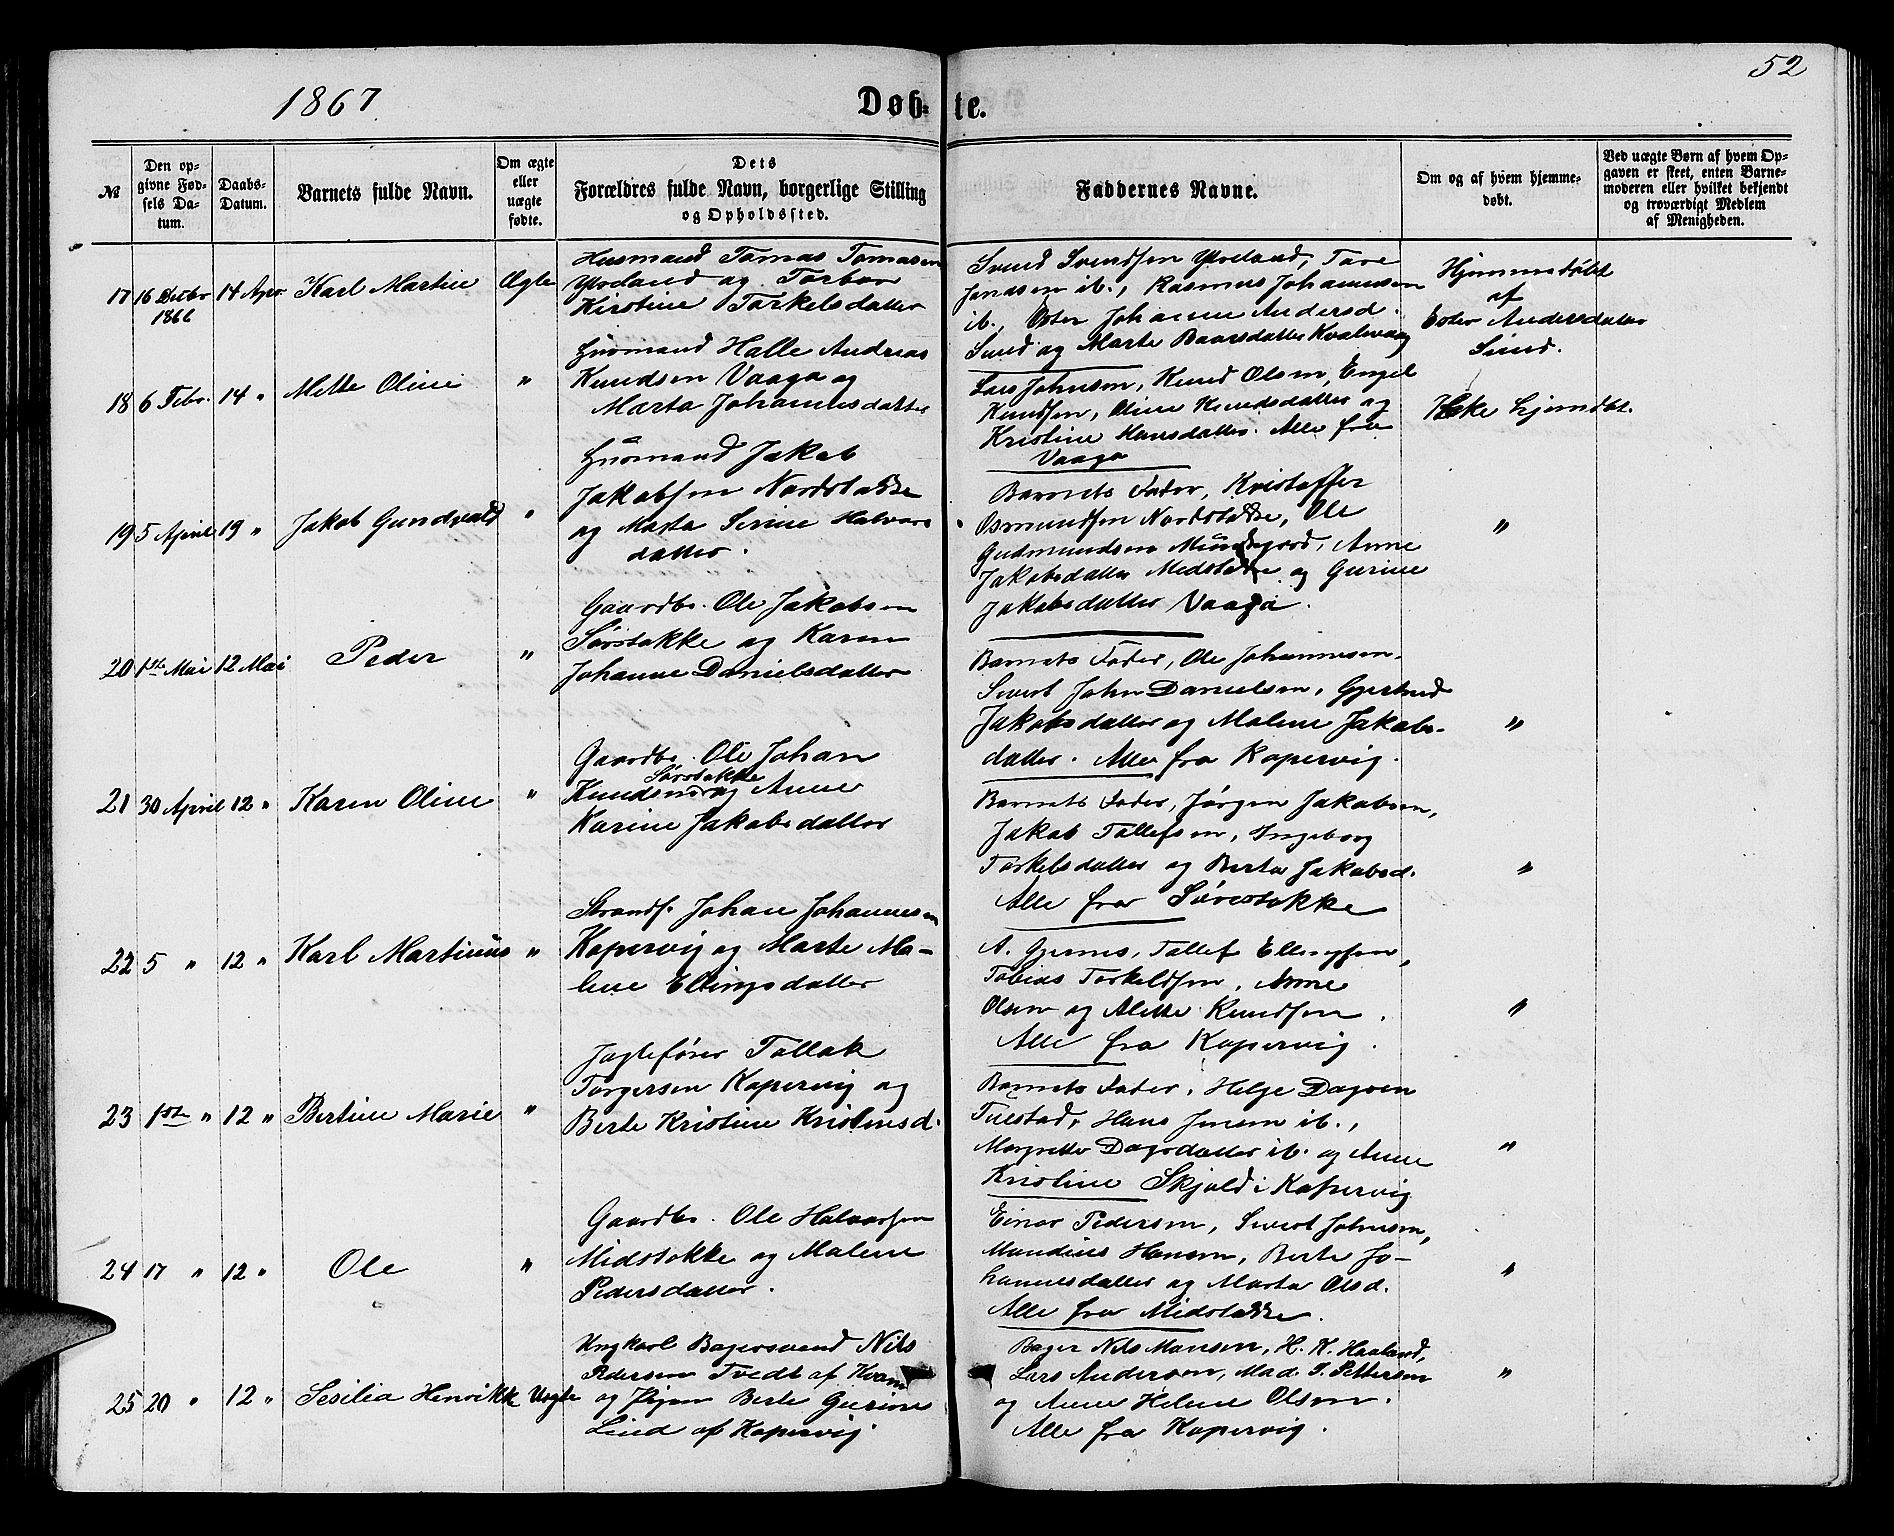 52
1867
Døbte.
№
Den opgivne Fødsels Datum.
Daabs-Datum.
Barnets fulde Navn.
Om ægte eller uægte fødte.
Dets Forældres fulde Navn, borgerlige Stilling og Opholdssted.
Faddernes Navne.
Om og af hvem hjemmedøbt.
Ved uægte Børn af hvem Opgaven er skeet, enten Barnemoderen eller hvilket bekjendt og troværdigt Medlem af Menigheden.
17 16 Decbr 1866 14 Apr Karl Martin Ægte
Husmand Tomas Tomasen
Ytreland og Torbor
Kirstine Torkelsdatter
Svend Svendsen Ytreland, Tore
Jonassen ib., Rasmus Johannesen
ib., Ester Johanne Andersd.
Sund og Marte Baarsdatter Kvalevaag
Hjemmedøbt
af
Ester Andersdatter
Sund.
18 6 Febr. 14 " Mette Oline "
Husmand Halle Andreas
Knudsen Vaaga og
Marta Johannesdatter
Lars Johnsen, Knud Olsen, Engel
Knudsen, Oline Knudsdatter og
Kristine Hansdatter. Alle fra
Vaaga
Ikke hjemdbt.
19 5 April 19 " Jakob Gundvald "
Husmand Jakob
Jakobsen Nordstokke
og Marta Serine Halvors
datter.
Barnets Fader, Kristoffer
Osmundsen Nordstokke, Ole
Gudmundsen, Anne
Jakobsdatter Midstokke og Gurine
Jakobsdatter Vaaga.
"
20 1ste Mai 12 Mai Peder "
Gaardbr. Ole Jakobsen
Sørstokke og Karen
Johanne Danielsdatter
Barnets Fader, Ole Johannesen.
Sivert John Danielsen, Gjertrud
Jakobsdatter og Malene Jakobs-
datter. Alle fra Kopervig.
"
21 30 April 12 " Karen Oline "
Gaardbr. Ole Johan
Sørstokke
Knudsen og Anne
Karine Jakobsdatter
Barnets Fader, Jørgen Jakobsen,
Jakob Tollefsen, Ingeborg
Torkelsdatter og Berta Jakobsd.
Alle fra Sørestokke
"
22 5 " 12 " Karl Martinus "
Strands. Johan Johannesen
Kopervig og Marte Ma-
lene Ellingsdatter
A. Gjernes, Tollef Ellingsen,
Tobias Torkeldsen, Anne
Olsen og Alette Knudsen.
Alle fra Kopervig.
"
23 1ste " 12 " Bertine Marie "
Jagtefører Tollak
Torgersen Kopervig og
Berte Kristine Kristensd.
Barnets Fader, Helge Dagsen
Tuestad, Hans Jensen ib.,
Margrethe Dagsdatter ib. og Anne
Kristine Skjold i Kopervig
"
24 17 " 12 " Ole "
Gaardbr. Ole Halvorsen
Midstokke og Malene
Pedersdatter.
Einar Pedersen, Sivert Johnsen,
Mandius Hansen, Berte Jo-
hannesdatter og Marta Olsd.
Alle fra Midstokke.
"
25 20 " 12 " Sesilia Henrikke Uægte
Ungkarl Bagersvend Nils
Pedersen Tvedt af Kvam
og Pigen Berte Gurine
Lind af Kopervig
Bager Nils Monsen, H. K. Haaland,
Lars Andersen, Mad. S. Pettersen
og Anne Helene Olsen.
Alle fra Kopervig.
"